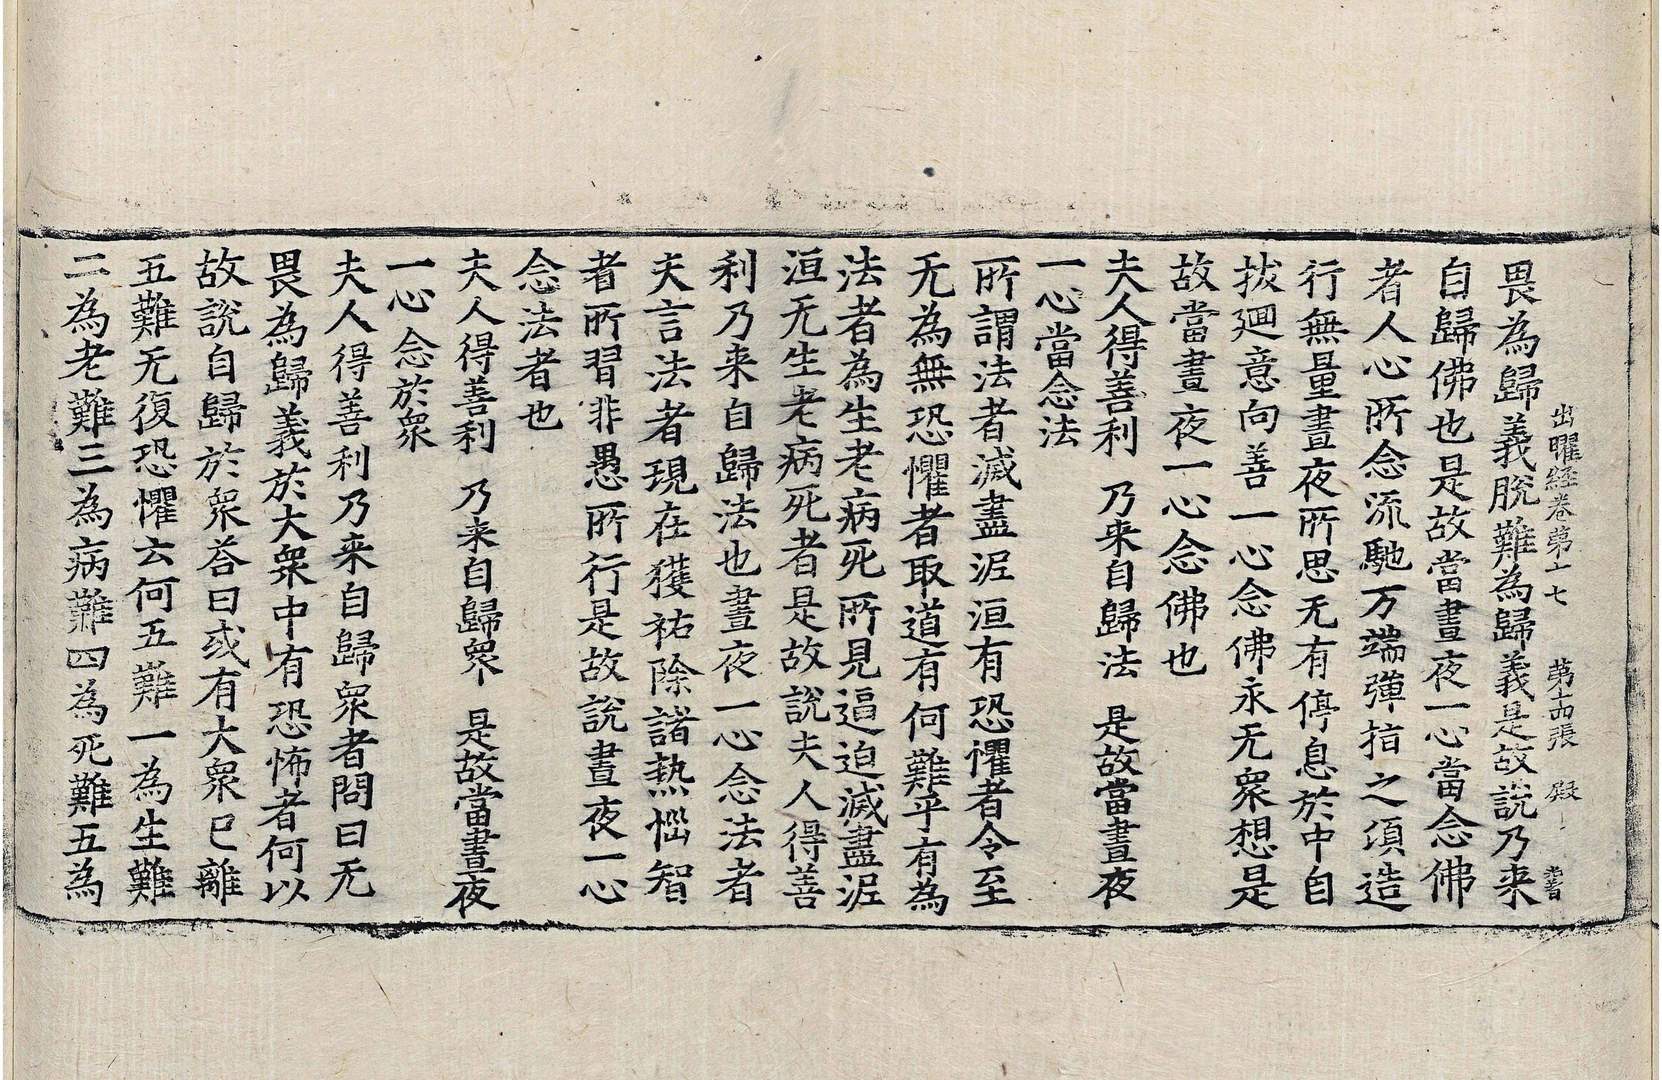 出曜経卷苐十七 苐十四張 殿
畏為歸義脫難為歸義是故說乃来
自歸佛也是故當晝夜一心當念佛
者人心所念流馳万端彈指之湏造
行無量晝夜所思无有停息於中自
拔𢌞意向善一心念佛永无衆想是
故當晝夜一心念佛也
夫人得善利 乃来自歸法 是故當晝夜
一心當念法
所謂法者滅盡泥洹有恐懼者令至
无為無恐懼者取道有何難乎有為
法者為生老病死所見逼迫滅盡泥
洹无生老病死者是故說夫人得善
利乃来自歸法也晝夜一心念法者
夫言法者現在獲祐除諸熱惱智
者所習非愚所行是故說晝夜一心
念法者也
夫人得善利 乃来自歸衆 是故當晝夜
一心念於衆
夫人得善利乃来自歸衆者問曰无
畏為歸義於大衆中有恐怖者何以
故說自歸於衆荅曰或有大衆已離
五難无復恐懼云何五難一為生難
二為老難三為病難四為死難五為